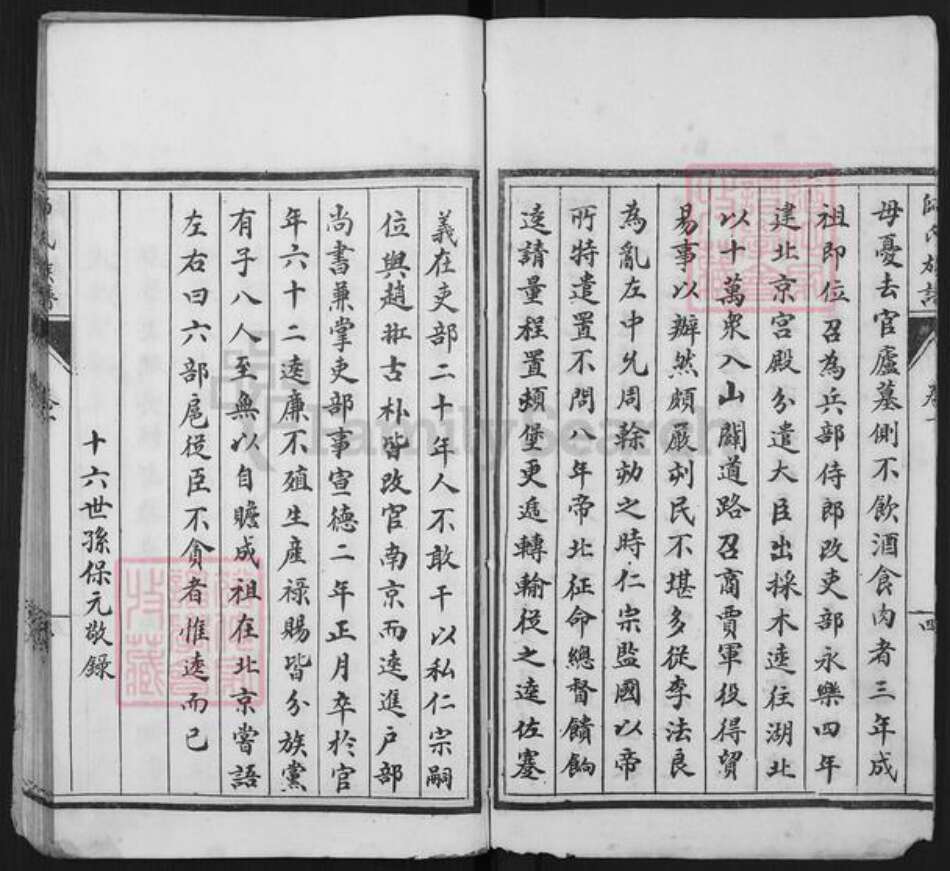 母憂去官廬墓側不飲酒食肉者三年成
祖即位召為兵部侍郎改吏部永樂四年
建北京宮殿分遣大臣出採木逵往湖北
以十萬眾入山闢道路召商賈軍役得貿
易事以辦然頗嚴刻民不堪多從李法良
為亂左中允周榦劾之時仁宗監國以帝
所特遣置不問八年帝北征命總督饋餉
逵請量程置頓堡更逓轉輸從之逵佐蹇
義在吏部二十年人不敢干以私仁宗嗣
位與趙羾古朴皆改官南京而逵進戶部
尚書兼掌吏部事宣德二年正月卒於官
年六十二逵廉不殖生產祿賜皆分族黨
有子八人至無以自贍成祖在北京嘗語
左右曰六部扈從臣不貪者惟逵而已
十六世孫保元敬錄
FamilySearch